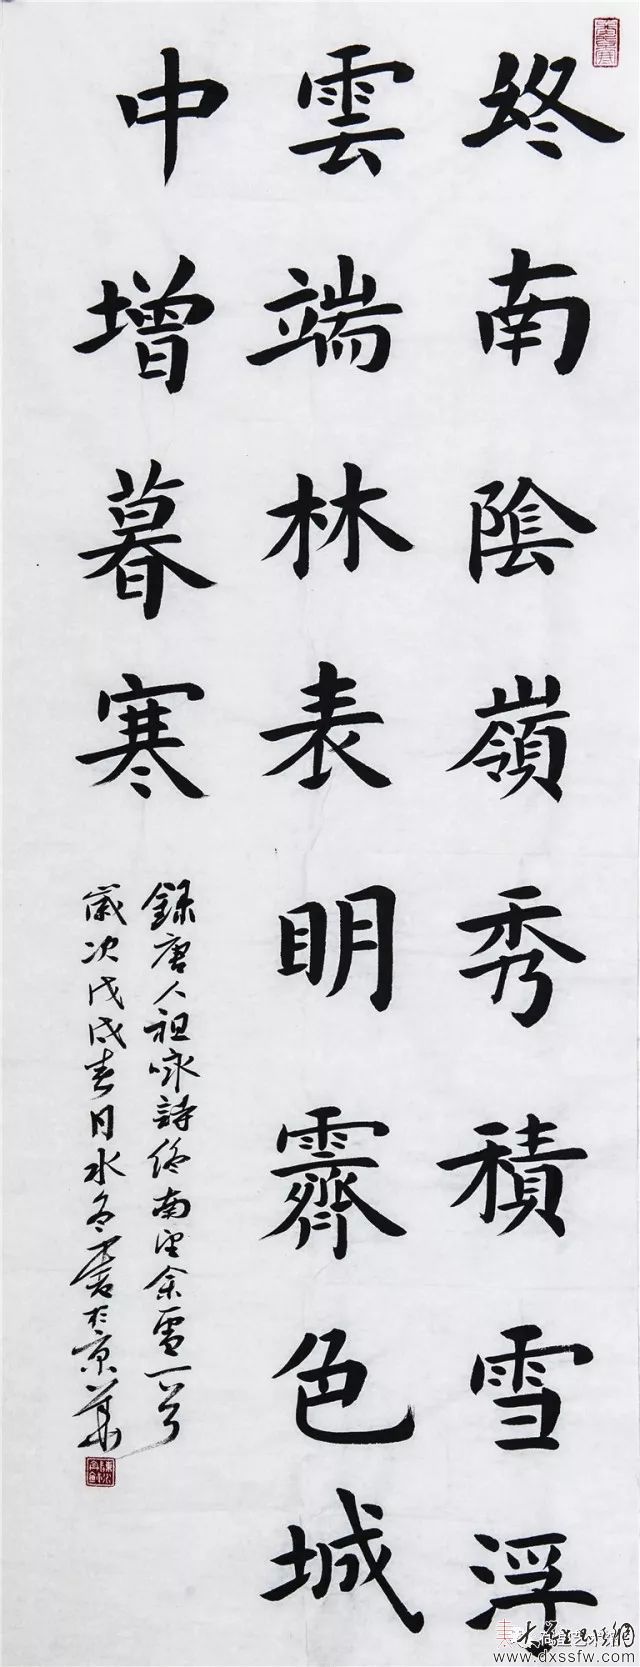 終南陰嶺秀積雪浮
雲端林表明霽色城
中增暮寒
錄唐人祖咏詩終南望余雪一首
歲次戊戌春月水
www.dxssfw.com